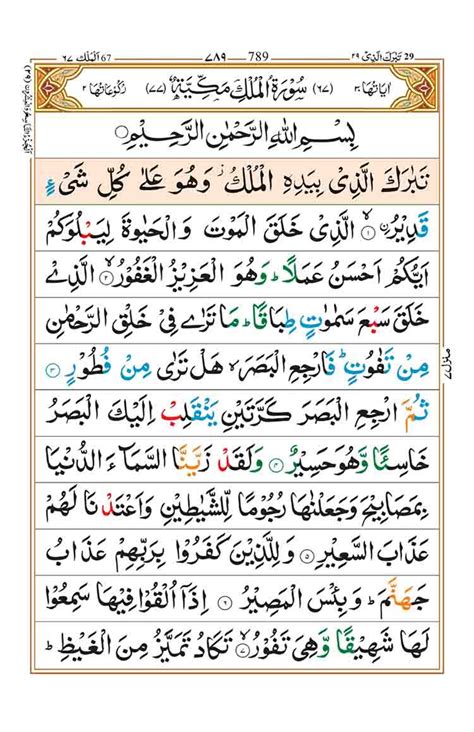 ٦٧ اَلْمُلْك 67 ٧٨٩ 789 تَبٰرَكَ الَّذِیْ ٢٩ 29
اٰيَاتُهَا ٣٠ (٦٧) سُوْرَةُ الْمُلْكِ مَكِّيَّةٌ (٧٧) رُكُوْعَاتُهَا ٢
بِسْمِ اللّٰهِ الرَّحْمٰنِ الرَّحِيْمِ
تَبٰرَكَ الَّذِیْ بِيَدِهِ الْمُلْكُ ز وَهُوَ عَلٰی كُلِّ شَیْءٍ
قَدِيْرُۨ ۙ١ الَّذِیْ خَلَقَ الْمَوْتَ وَالْحَيٰوةَ لِيَبْلُوَكُمْ
اَيُّكُمْ اَحْسَنُ عَمَلًا ؕ وَهُوَ الْعَزِيْزُ الْغَفُوْرُ ۙ٢ الَّذِیْ
خَلَقَ سَبْعَ سَمٰوٰتٍ طِبَاقًا ؕ مَا تَرٰی فِیْ خَلْقِ الرَّحْمٰنِ
مِنْ تَفٰوُتٍ ؕ فَارْجِعِ الْبَصَرَ ۙ هَلْ تَرٰی مِنْ فُطُوْرٍ ٣
ثُمَّ ارْجِعِ الْبَصَرَ كَرَّتَيْنِ يَنْقَلِبْ اِلَيْكَ الْبَصَرُ
خَاسِئًا وَّهُوَ حَسِيْرٌ ٤ وَلَقَدْ زَيَّنَّا السَّمَآءَ الدُّنْيَا
بِمَصَابِيْحَ وَجَعَلْنٰهَا رُجُوْمًا لِّلشَّيٰطِيْنِ وَاَعْتَدْنَا لَهُمْ
عَذَابَ السَّعِيْرِ ٥ وَلِلَّذِيْنَ كَفَرُوْا بِرَبِّهِمْ عَذَابُ
جَهَنَّمَ ؕ وَبِئْسَ الْمَصِيْرُ ٦ اِذَآ اُلْقُوْا فِيْهَا سَمِعُوْا
لَهَا شَهِيْقًا وَّهِیَ تَفُوْرُ ۙ٧ تَكَادُ تَمَيَّزُ مِنَ الْغَيْظِ ؕ
منزل ٧